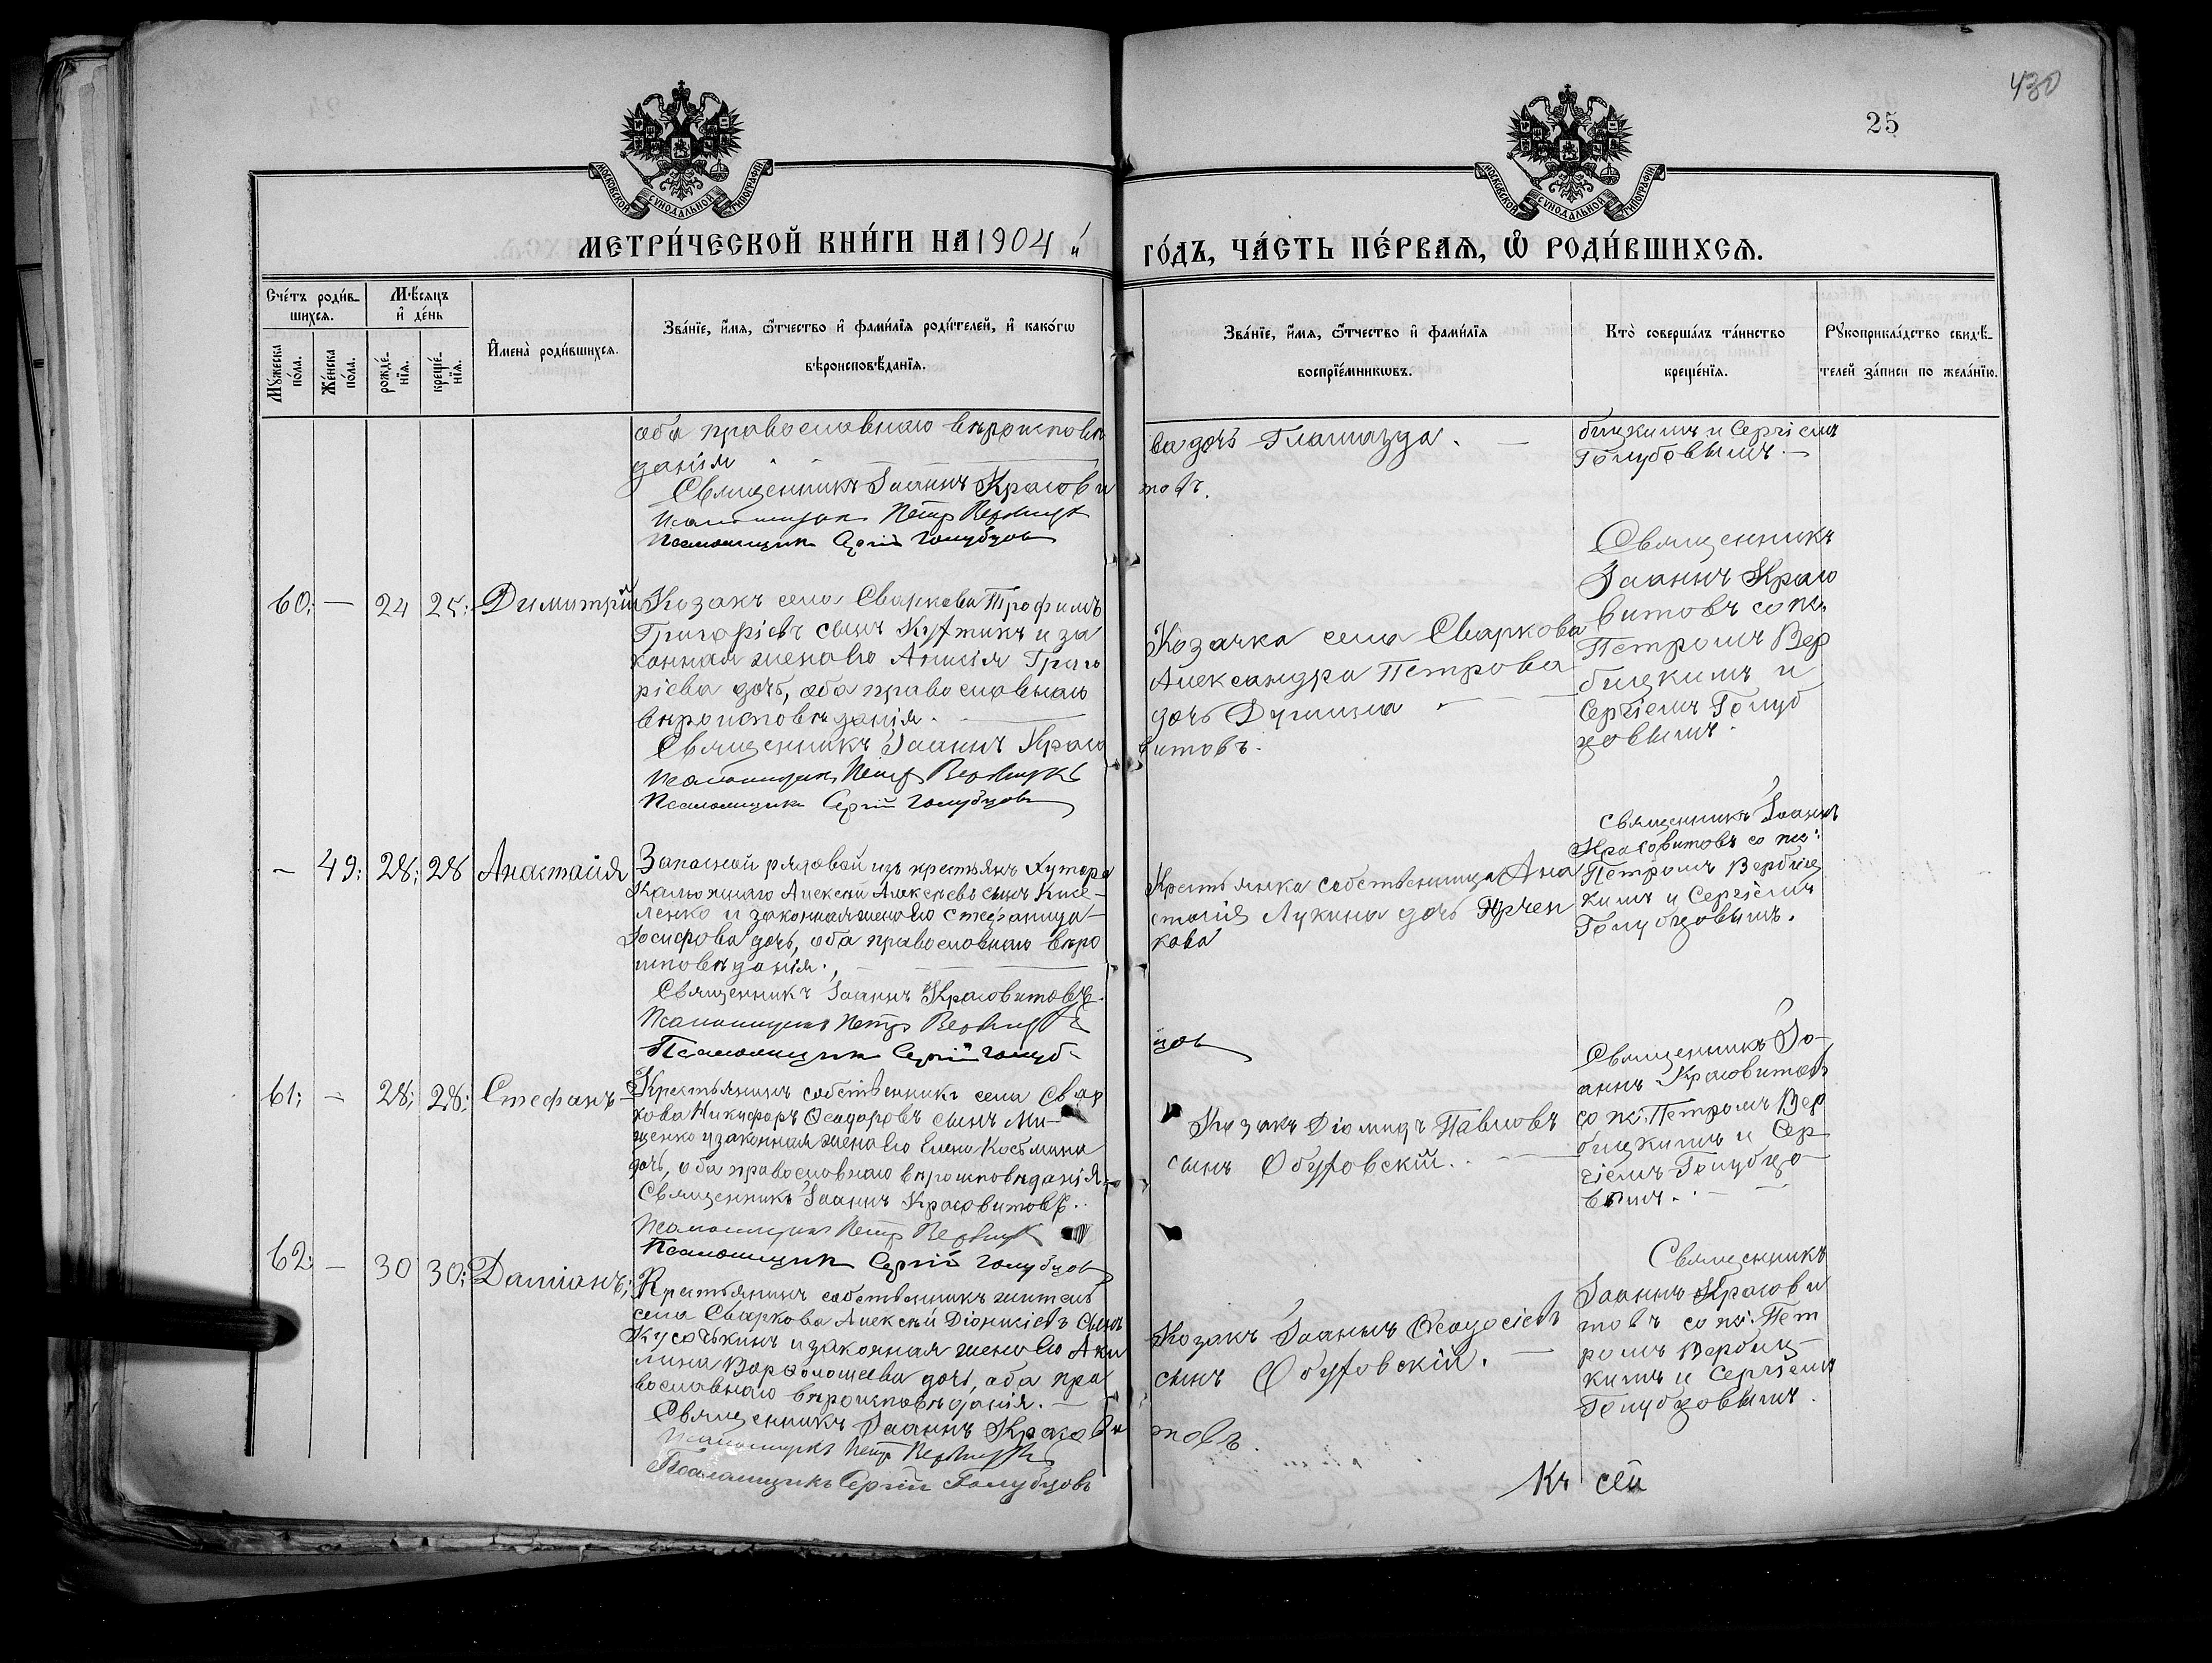 430
25
МОСКОВСКОЙ СѴНОДАЛЬНОЙ ТИПОГРАФІИ
МОСКОВСКОЙ СѴНОДАЛЬНОЙ ТИПОГРАФІИ
МЕТРИ́ЧЕСКОЙ КНИ́ГИ НА 1904 й
ГО́ДЪ, ЧА́СТЬ ПЕ́РВАѦ, Ѡ҆ РОДИ́ВШИХСѦ.
Сче́тъ роди́в-
шихсѧ.
Мѣ́сѧцъ
и҆ де́нь
Мꙋ́жеска
по́ла.
Же́нска
по́ла.
рожде́-
нїѧ.
креще́-
нїѧ.
И҆мена̀ роди́вшихсѧ.
Зва́нїе, и҆́мѧ, ѻ҆́тчество и҆ фами́лїѧ роди́телей, и҆ како́гѡ
вѣроисповѣ́данїѧ.
Зва́нїе, и҆́мѧ, ѻ҆́тчество и҆ фами́лїѧ
воспрїе́мникѡвъ.
Кто̀ соверша́лъ та́инство
креще́нїѧ.
Рꙋкоприкла́дство свидѣ́-
телей за́писи по жела́нїю.
оба православнаго вѣроисповѣ
данія
Священникъ Іоаннъ Красови
товъ.
Псаломщикъ Петр Вербицк
Псаломщик Сергій Голубцов
ва дочь
бицкимъ и Сергіемъ
Голубовымъ.
60; — 24 25; Димитрій
Козакъ села Сваркова Трофимъ
Григоріевъ сынъ и за
конная жена его Анисія Григо
ріева дочь, оба православнаго
вѣроисповѣданія.
Священникъ Іоаннъ Красо
витовъ.
Псаломщикъ Петр Вербицкъ
Псаломщик Сергій Голубцов
Козачка села Сваркова
Александра Петрова
дочь
Священникъ
Іоаннъ Красо
витовъ со пс.
Петромъ Вер
бицкимъ и
Сергіемъ Голуб
цовымъ.
— 49; 28; 28 Анастасія
Запасной рядовой изъ крестьянъ Хутора
Алексей Алексеевъ сынъ Кисе-
ленко и законная жена его Стефанида
Іосифова дочь, оба православнаго вѣро
исповѣданія.
Священникъ Іоаннъ Красовитовъ.
Псаломщикъ Петр Вербицк
Псаломщик Сергій Голуб-
цов
Крестьянка собственница Ана
стасія Лукина дочь
кова
Священникъ Іоаннъ
Красовитовъ со пс:
Петромъ Вербиц
кимъ и Сергіемъ
Голубцовымъ.
61; — 28; 28; Стефанъ
Крестьянинъ собственникъ села Свар
кова Никифоръ Ѳеодоровъ сынъ Ми-
щенко и законная жена его Елена Косьмина
дочь, оба православнаго вѣроисповѣданія.
Священникъ Іоаннъ Красовитовъ.
Псаломщикъ Петр Вербицк
Псаломщик Сергій Голубцов
Козакъ Діомидъ Павловъ
сынъ Обутовскій.
Священникъ Іо-
аннъ Красовитовъ
со пс. Петромъ Вер
бицкимъ и Сер
гіемъ Голубцо
вымъ.
62; — 30 30; Даміанъ;
Крестьянинъ собственникъ житель
села Сваркова Алексѣй Діонисіевъ сынъ
Кусачкинъ и законная жена его Аки
лина Варѳоломеева дочь, оба пра
вославнаго вѣроисповѣданія.
Священникъ Іоаннъ Красови
товъ.
Псаломщикъ Петр Вербицкъ
Псаломщикъ Сергій Голубцовъ
Козакъ Іоаннъ Ѳеодосіевъ
сынъ Обутовскій.
Священникъ
Іоаннъ Красови
товъ со пс. Пет
ромъ Вербиц
кимъ и Сергіемъ
Голубцовымъ.
Къ сей